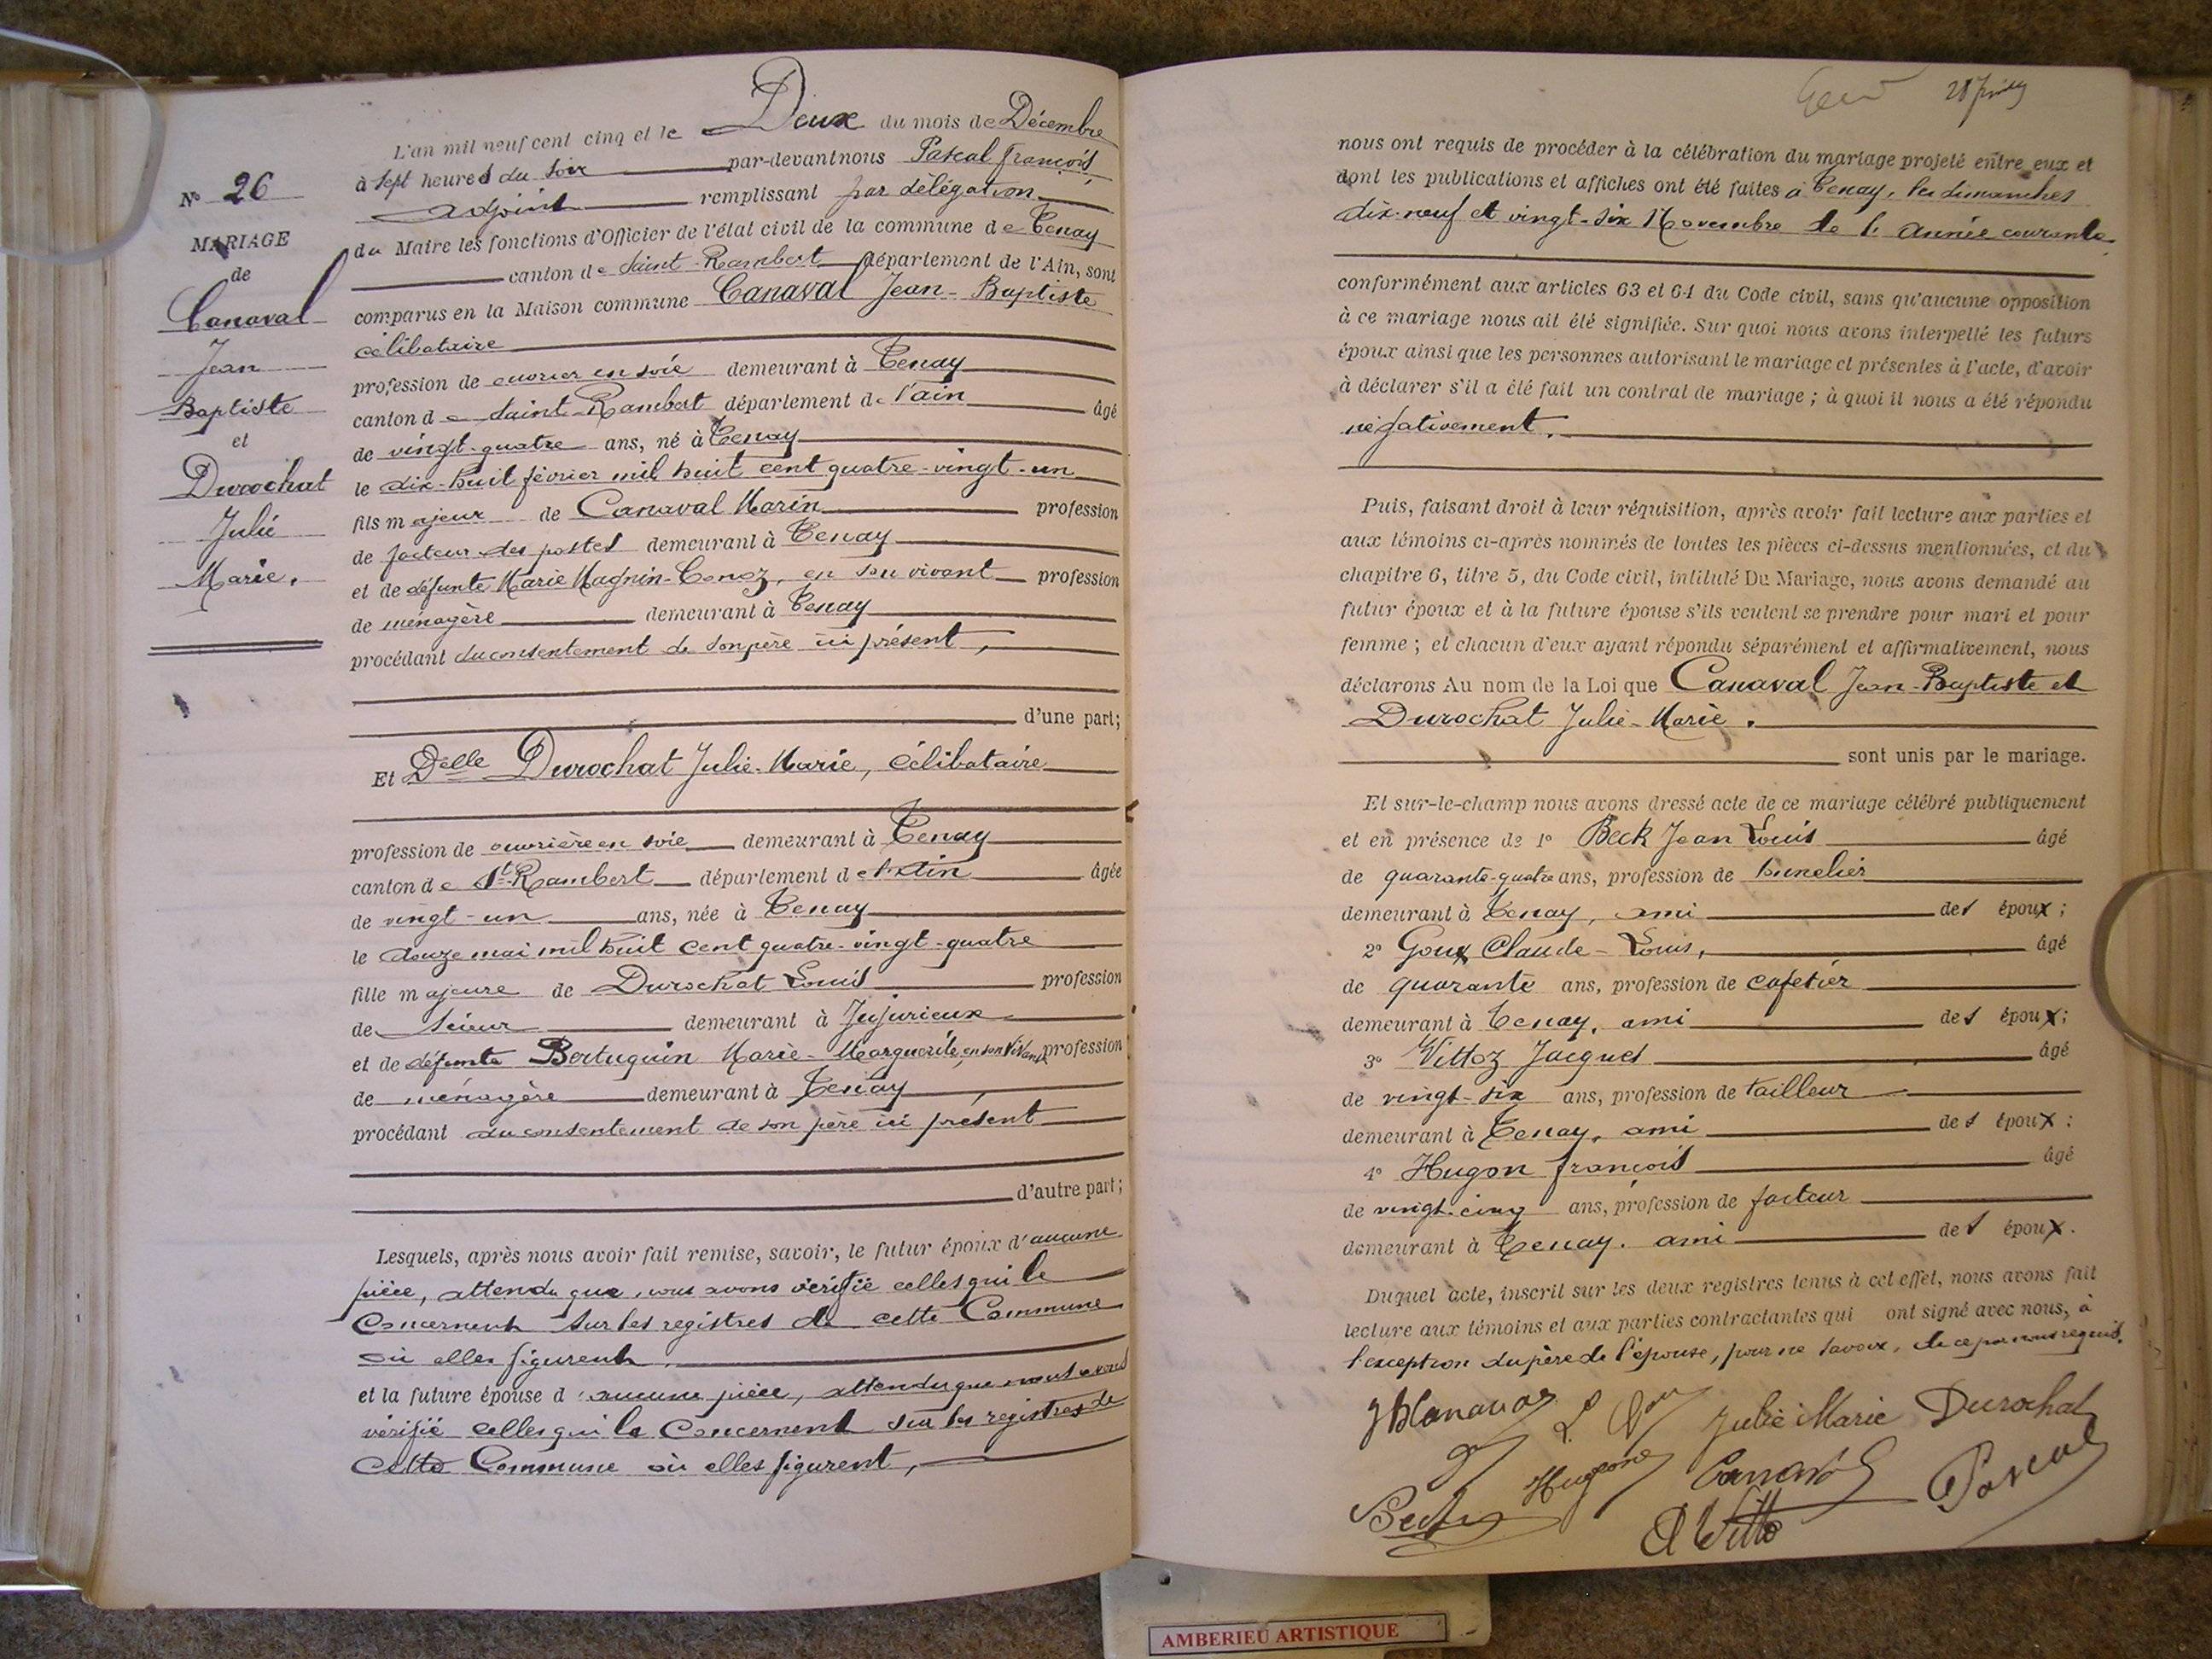 N° 26
MARIAGE
de
Canaval
Jean
Baptiste
et
Durochat
Julie
Marie.
L'an mil neuf cent cinq et le Deux du mois de Décembre
à sept heures du soir par-devant nous Pascal François,
adjoint remplissant par délégation
du Maire les fonctions d'Officier de l'état civil de la commune de Tenay
canton de Saint-Rambert département de l'Ain, sont
comparus en la Maison commune Canaval Jean-Baptiste
célibataire
profession de ouvrier en soie demeurant à Tenay
canton de Saint-Rambert département de l'ain âgé
de vingt-quatre ans, né à Tenay
le dix-huit février mil huit cent quatre-vingt-un
fils majeur de Canaval Marin profession
de facteur des postes demeurant à Tenay
et de défunte Marie Magnin-Tenoz, en son vivant profession
de ménagère demeurant à Tenay
procédant du consentement de son père ici présent,
d'une part;
Et Delle Durochat Julie-Marie, célibataire
profession de ouvrière en soie demeurant à Tenay
canton de St-Rambert département de l'Ain âgée
de vingt-un ans, née à Tenay
le douze mai mil huit cent quatre-vingt-quatre
fille majeure de Durochat Louis profession
de scieur demeurant à Jujurieux
et de défunte Bertuquin Marie-Marguerite, en son vivant profession
de ménagère demeurant à Tenay
procédant du consentement de son père ici présent
d'autre part;
Lesquels, après nous avoir fait remise, savoir, le futur époux d'aucune
pièce, attendu que, nous avons vérifié celles qui le
concernent sur les registres de cette Commune
où elles figurent.
et la future épouse d'aucune pièce, attendu que nous avons
vérifié celles qui la concernent sur les registres de
cette Commune où elles figurent,
28 Juillet
nous ont requis de procéder à la célébration du mariage projeté entre eux et
dont les publications et affiches ont été faites à Tenay, les dimanches
dix-neuf et vingt-six Novembre de l'année courante.
conformément aux articles 63 et 64 du Code civil, sans qu'aucune opposition
à ce mariage nous ait été signifiée. Sur quoi nous avons interpellé les futurs
époux ainsi que les personnes autorisant le mariage et présentes à l'acte, d'avoir
à déclarer s'il a été fait un contrat de mariage ; à quoi il nous a été répondu
négativement.
Puis, faisant droit à leur réquisition, après avoir fait lecture aux parties et
aux témoins ci-après nommés de toutes les pièces ci-dessus mentionnées, et du
chapitre 6, titre 5, du Code civil, intitulé Du Mariage, nous avons demandé au
futur époux et à la future épouse s'ils veulent se prendre pour mari et pour
femme ; et chacun d'eux ayant répondu séparément et affirmativement, nous
déclarons Au nom de la Loi que Canaval Jean-Baptiste et
Durochat Julie-Marie.
sont unis par le mariage.
Et sur-le-champ nous avons dressé acte de ce mariage célébré publiquement
et en présence de 1° Beck Jean Louis âgé
de quarante-quatre ans, profession de tunelier
demeurant à Tenay, ami des époux ;
2° Goux Claude-Louis, âgé
de quarante ans, profession de cafetier
demeurant à Tenay, ami des époux ;
3° Vittoz Jacques âgé
de vingt-six ans, profession de tailleur
demeurant à Tenay, ami des époux ;
4° Hugon François âgé
de vingt-cinq ans, profession de facteur
demeurant à Tenay. ami des époux.
Duquel acte, inscrit sur les deux registres tenus à cet effet, nous avons fait
lecture aux témoins et aux parties contractantes qui ont signé avec nous, à
l'exception du père de l'épouse, pour ne savoir, de ce par nous requis.
JB Canaval Julie Marie Durochat
Beck Hugon Canaval Pascal
Vitto
AMBERIEU ARTISTIQUE